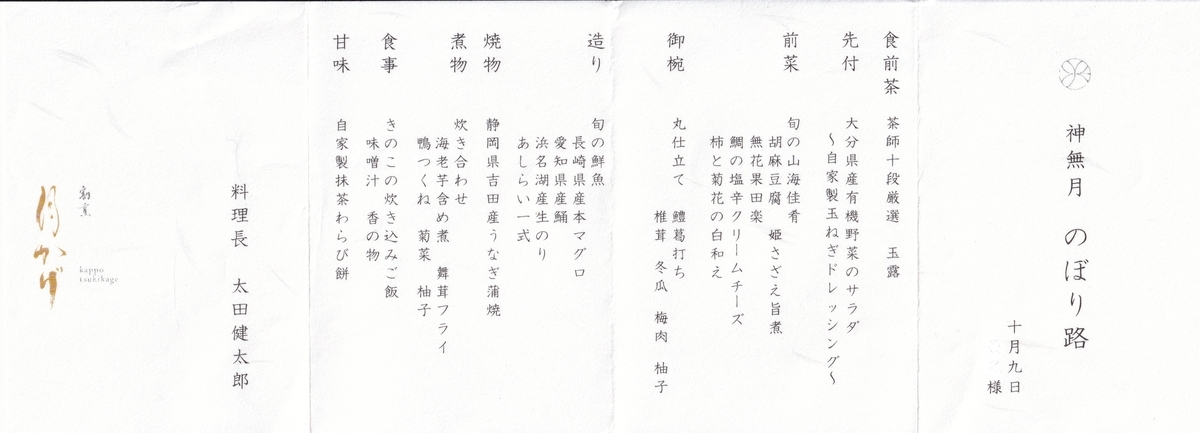 神無月 のぼり路
十月九日
様
食前茶 茶師十段厳選 玉露
先付 大分県産有機野菜のサラダ
～自家製玉ねぎドレッシング～
前菜 旬の山海佳肴
胡麻豆腐 姫さざえ旨煮
無花果田楽
鯛の塩辛クリームチーズ
柿と菊花の白和え
御椀 丸仕立て 鱧葛打ち
椎茸 冬瓜 梅肉 柚子
造り 旬の鮮魚
長崎県産本マグロ
愛知県産鯒
浜名湖産生のり
あしらい一式
焼物 静岡県吉田産うなぎ蒲焼
煮物 炊き合わせ
海老芋含め煮 舞茸フライ
鴨つくね 菊菜 柚子
食事 きのこの炊き込みご飯
味噌汁 香の物
甘味 自家製抹茶わらび餅
料理長 太田健太郎
割烹
月かげ
kappo
tsukikage